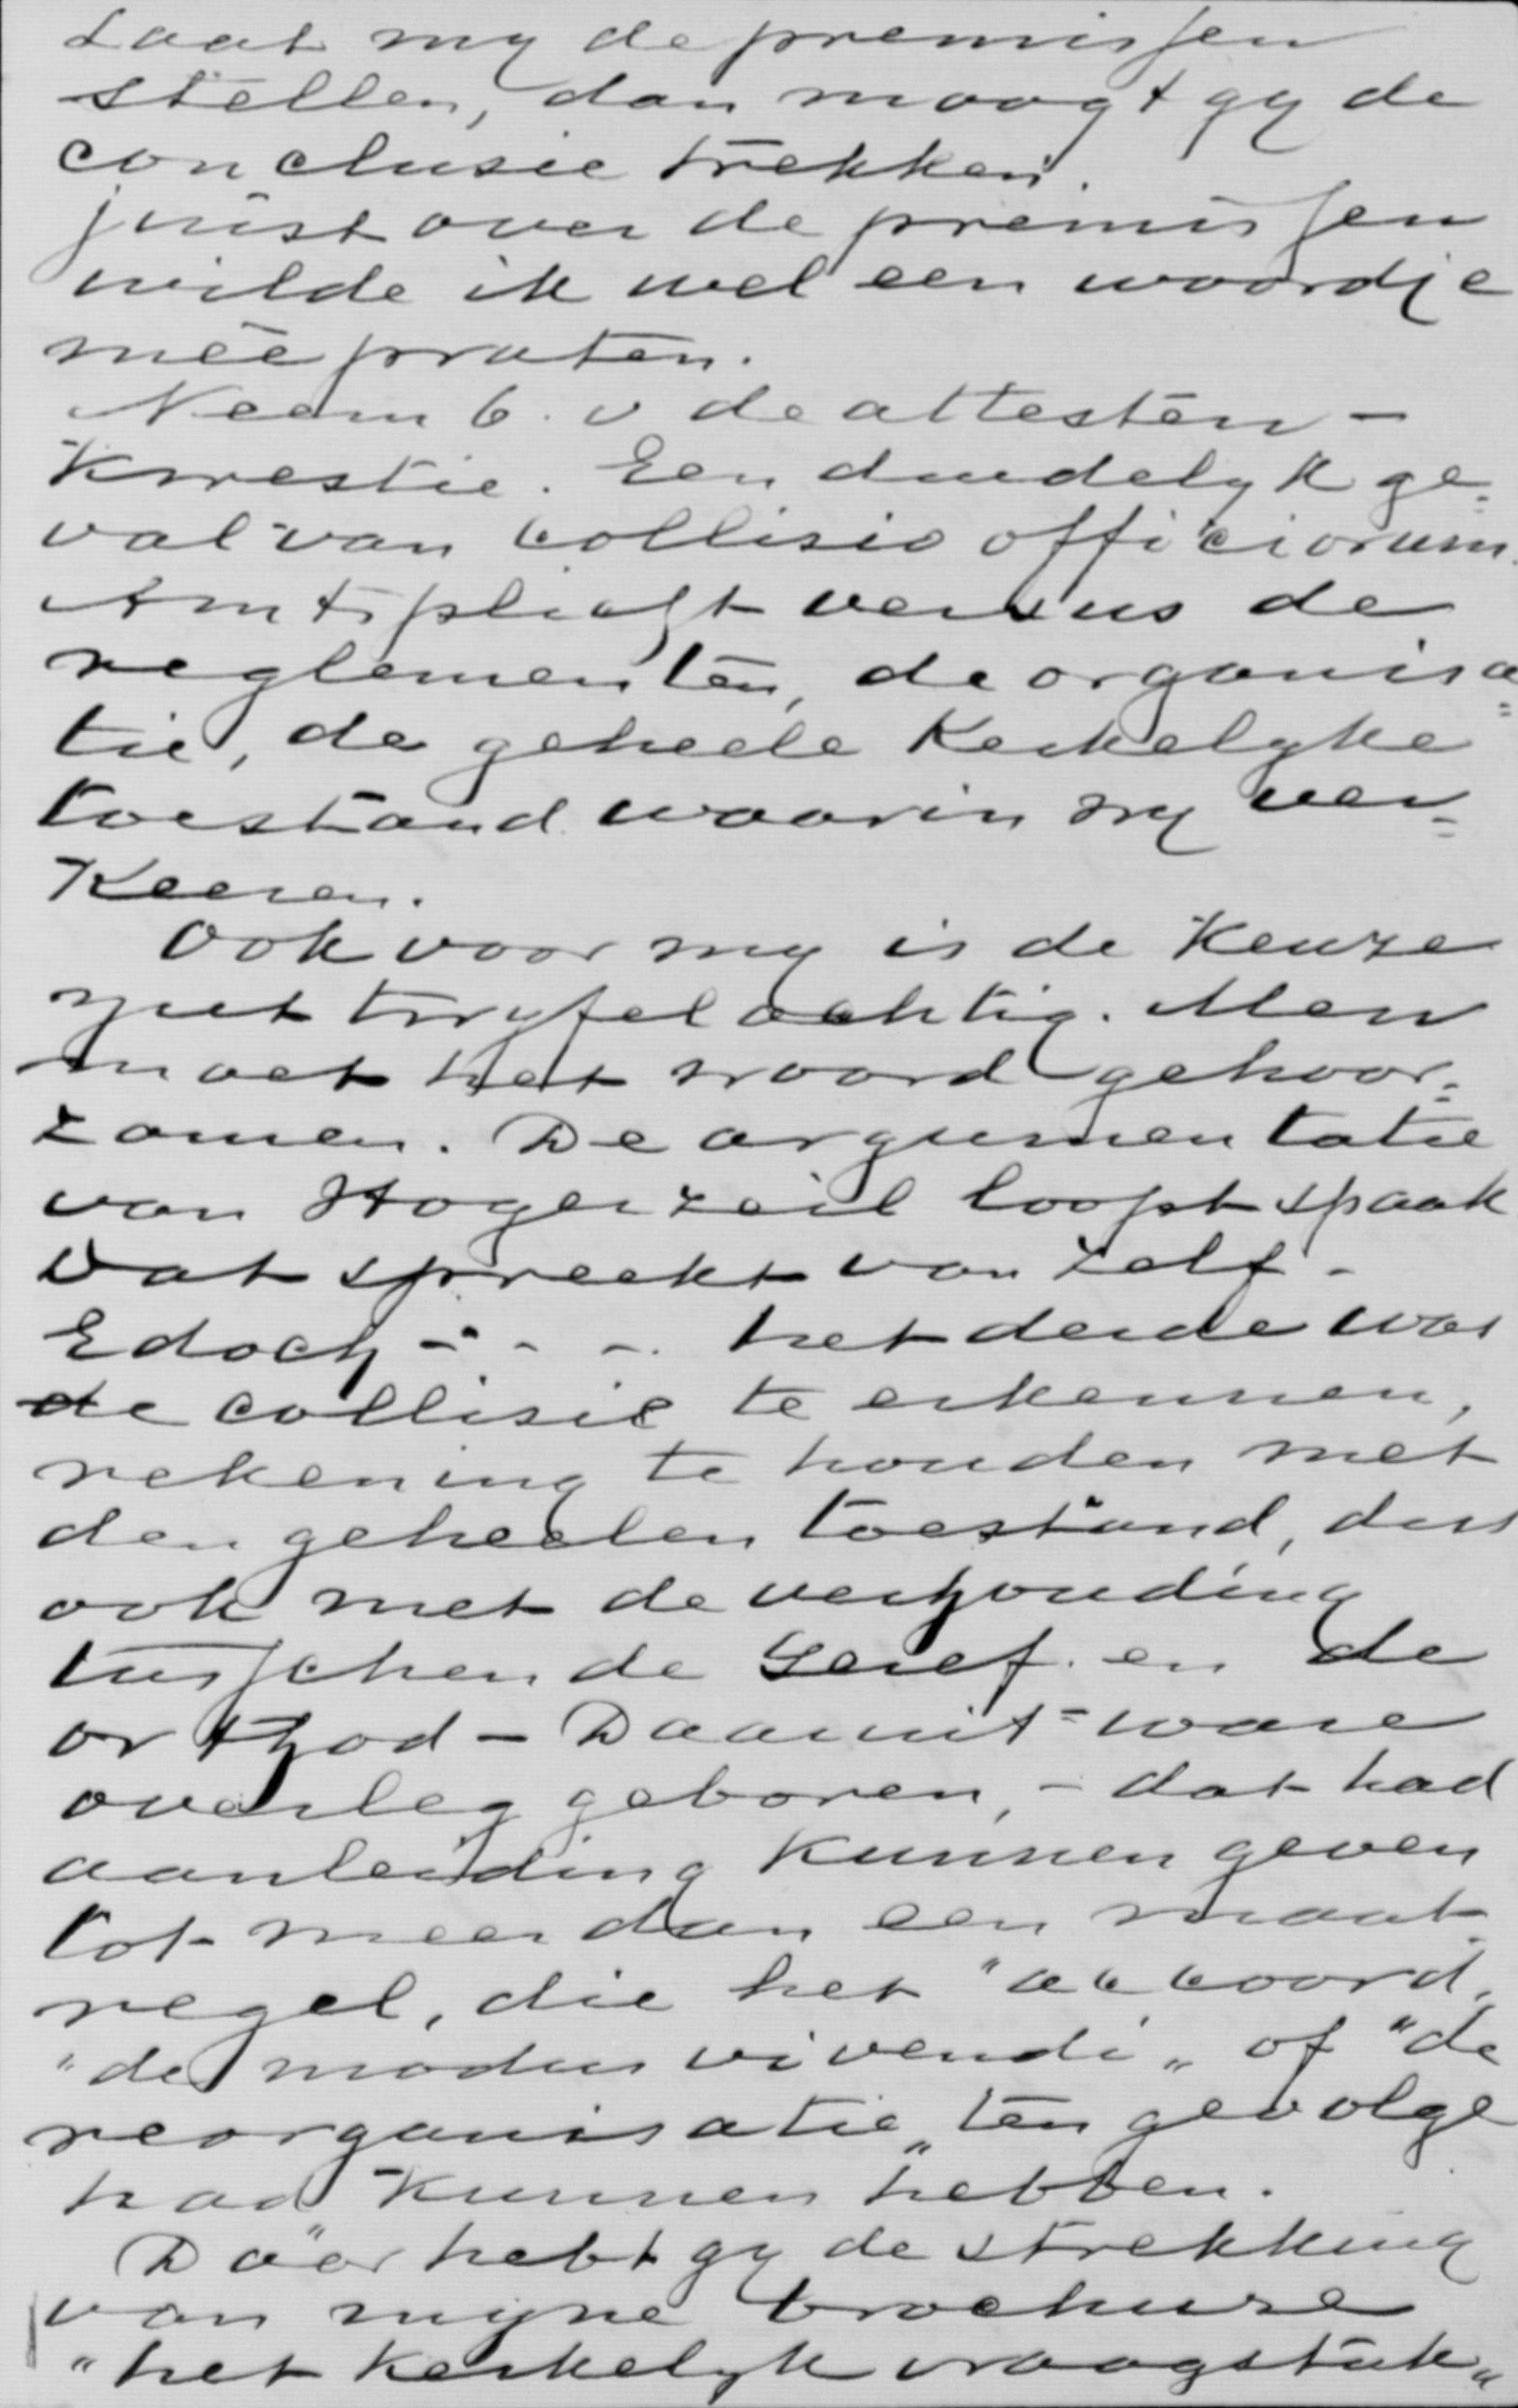 Laat my de premissen
stellen, dan moogt gy de
conclusie trekken.
juist over de premissen
wilde ik wel een woordje
meê praten.
Neem b.v de attesten -
kwestie. Een duidelyk ge=
val van collisio officiorum.
Amtsplicht versus de
reglementen, de organisa=
tie, de geheele Kerkelyke
toestand waarin wy ver=
keeren.
Ook voor my is de Keuze
niet twyfelachtig. Men
moet het woord gehoor=
zamen. De argumentatie
van Hogerzeil loopt spaak
dat spreekt van zelf -
Edoch - - - - het derde was
de collisie te erkennen,
rekening te houden met
den geheelen toestand, dus
ook met de verhouding
tusschen de Geref. en de
orthod - Daaruit ware
overleg geboren, - dat had
aanleiding kunnen geven
tot meer dan een maat-
regel, die het "accoord,
"de modus vivendi" of "de
reorganisatie" ten gevolge
had kunnen hebben.
Daär hebt gy de strekking
van myne brochure
"het Kerkelyk vraagstuk"